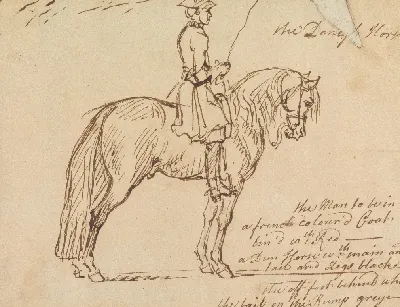 the Danish Horse
the Man to be in
a french colour'd Coat
lin'd wth Red
a Dun Horse wth main and
taile and Legs blacke
the off foot behind whi
the hair on the Rump greye